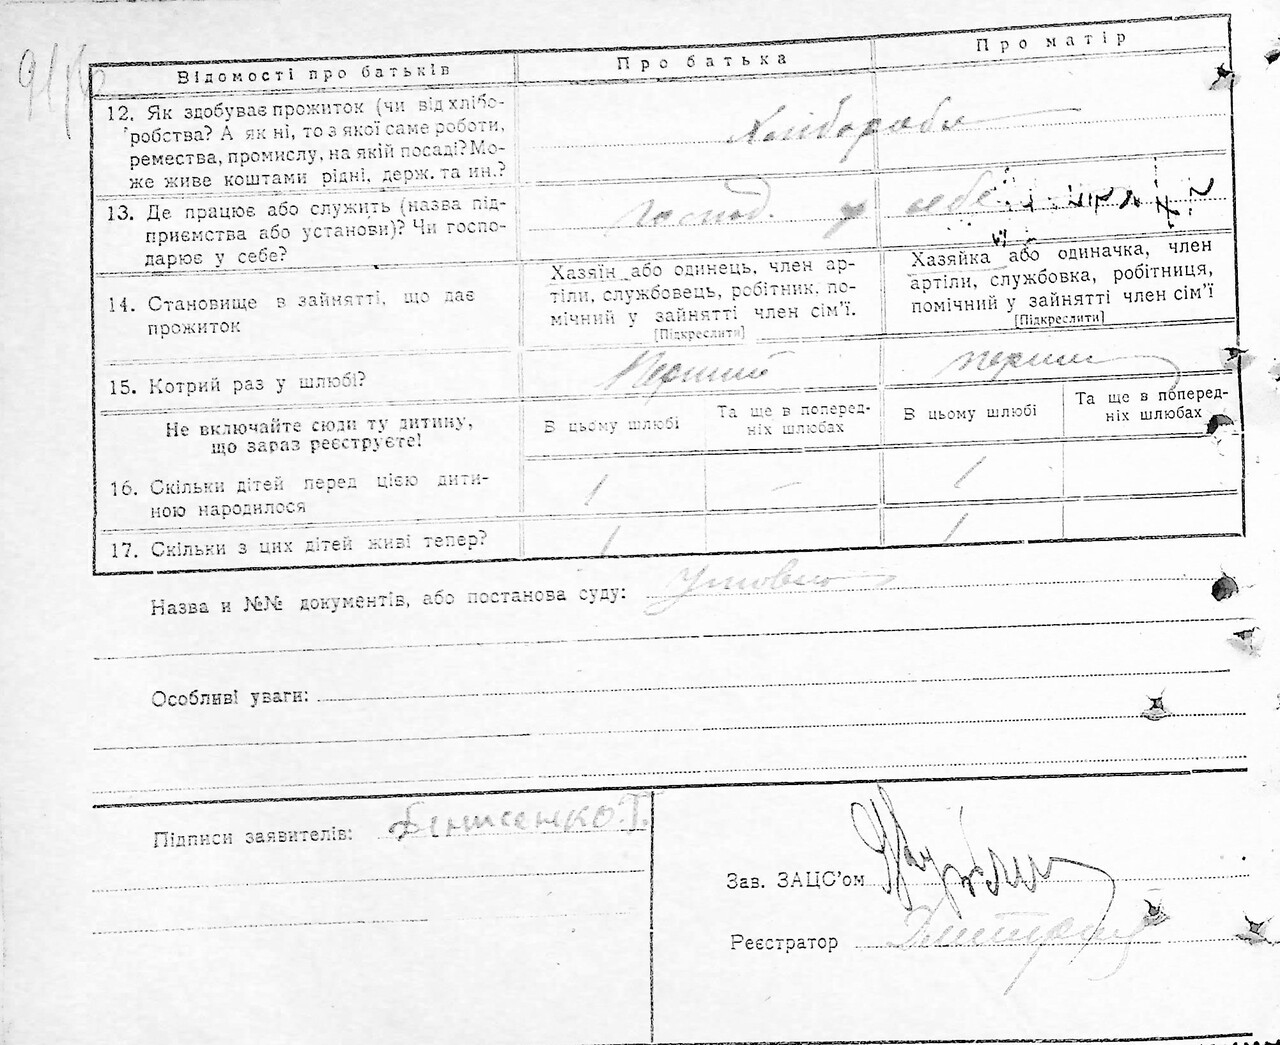 Відомості про батьків
Про батька
Про матір
12. Як здобуває прожиток (чи від хлібо-
робства? А як ні, то з якої саме роботи,
ремества, промислу, на якій посаді? Мо-
же живе коштами рідні, держ. та ин.?
Хліборобо
13. Де працює або служить (назва під-
приємства або установи)? Чи госпо-
дарює у себе?
господ. у себе
14. Становище в зайнятті, що дає
прожиток
Хазяїн або одинець, член ар-
тіли, службовець, робітник, по-
мічний у зайнятті член сім'ї.
[Підкреслити]
Хазяйка або одиначка, член
артіли, службовка, робітниця,
помічний у зайнятті член сім'ї
[Підкреслити]
15. Котрий раз у шлюбі?
Перший
перши
Не включайте сюди ту дитину,
що зараз реєструєте!
В цьому шлюбі
Та ще в поперед-
ніх шлюбах
В цьому шлюбі
Та ще в поперед-
ніх шлюбах
16. Скільки дітей перед цією дити-
ною народилося
1 – 1
17. Скільки з цих дітей живі тепер?
1 1
Назва и №№ документів, або постанова суду:
Особливі уваги:
Підписи заявителів: Денисенко Т.
Зав. ЗАЦС'ом
Реєстратор